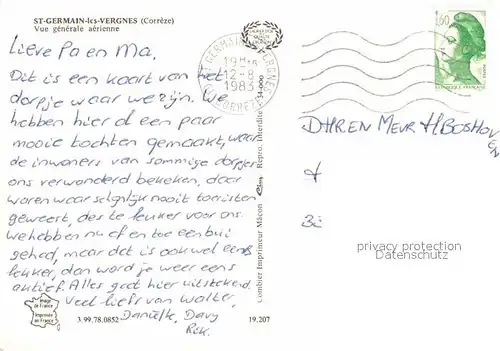 ST-GERMAIN-les-VERGNES (Corrèze)
Vue générale aérienne
Lieve Pa en Ma,
Dit is een kaart van het
dorpje waar we zijn. We
hebben hier al een paar
mooie tochten gemaakt, waar
de inwoners van sommige dorpjes
ons verwonderd bekeken, daar
waren waarschijnlijk nooit toeristen
geweest, des te leuker voor ons.
We hebben nu af en toe een bui
gehad, maar dat is ook wel eens
lekker, dan word je weer eens
actief. Alles gaat hier uitstekend.
Veel liefs van Walter,
Danielle, Davy
Rik.
Image de France
Imprimée en France
3.99.78.0852
19.207
Combier Imprimeur Mâcon
Repro Interdite
ST GERMAIN VERGNES
19H15
12-8
1983
CORREZE
1,60
REPUBLIQUE FRANCAISE
DHR. EN MEVR H. BOSHOVEN
privacy protection
DANUSALE.com